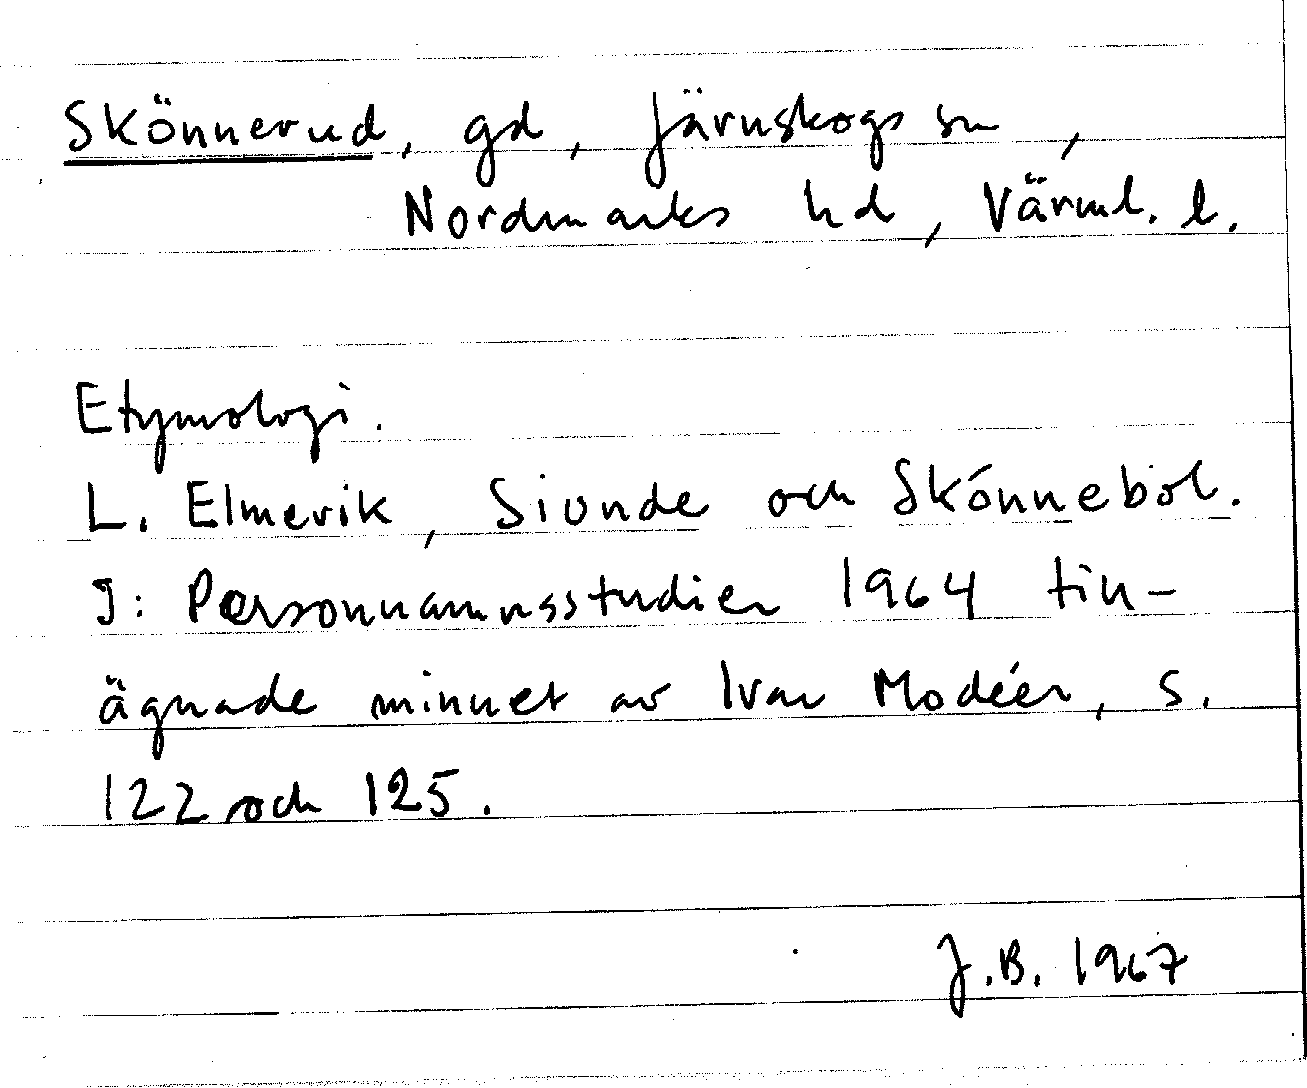 Skönnerud, gd, Järnskogs sn,
Nordmarks hd, Värml. l.
Etymologi.
L. Elmevik, Siunde och Skónnebol.
I: Personnamnsstudier 1964 tin-
ägnade minnet av Ivar Modéer, s.
122 och 125.
J.B. 1967